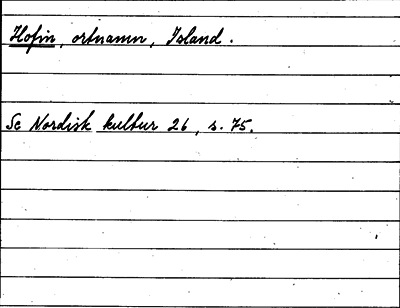 Hofin, ortnamn, Island.
Se Nordisk kultur 26, s. 75.